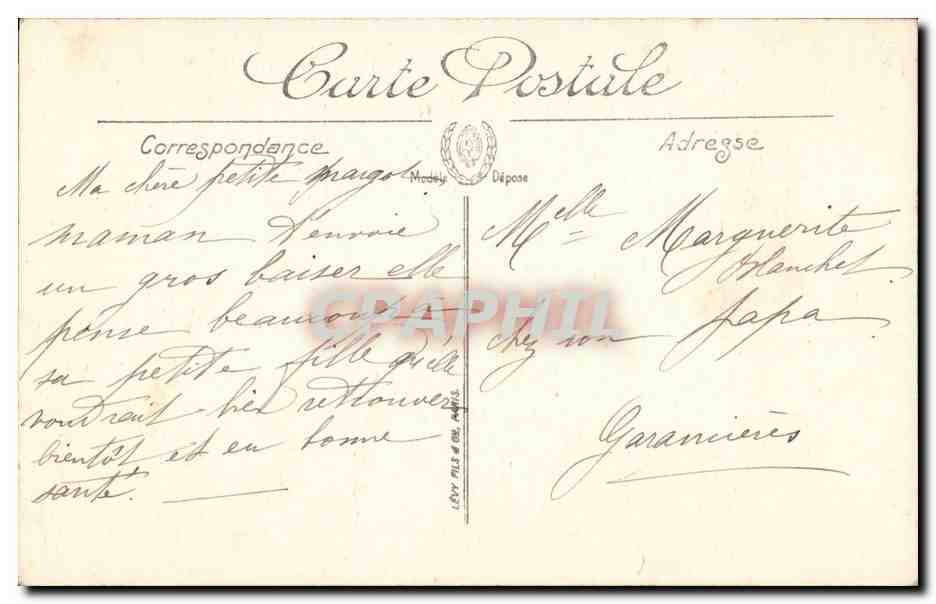 Carte Postale
Correspondance
Adresse
Modèle Déposé
Ma chère petite Margot
maman t'envoie
un gros baiser elle
pense beaucoup à
sa petite fille qu'elle
voudrait bien retrouver
bientôt et en bonne
santé.
LÉVY FILS & Cie, PARIS.
Melle Marguerite
Blanchet
chez son Papa
Garancières
CPAPHIL